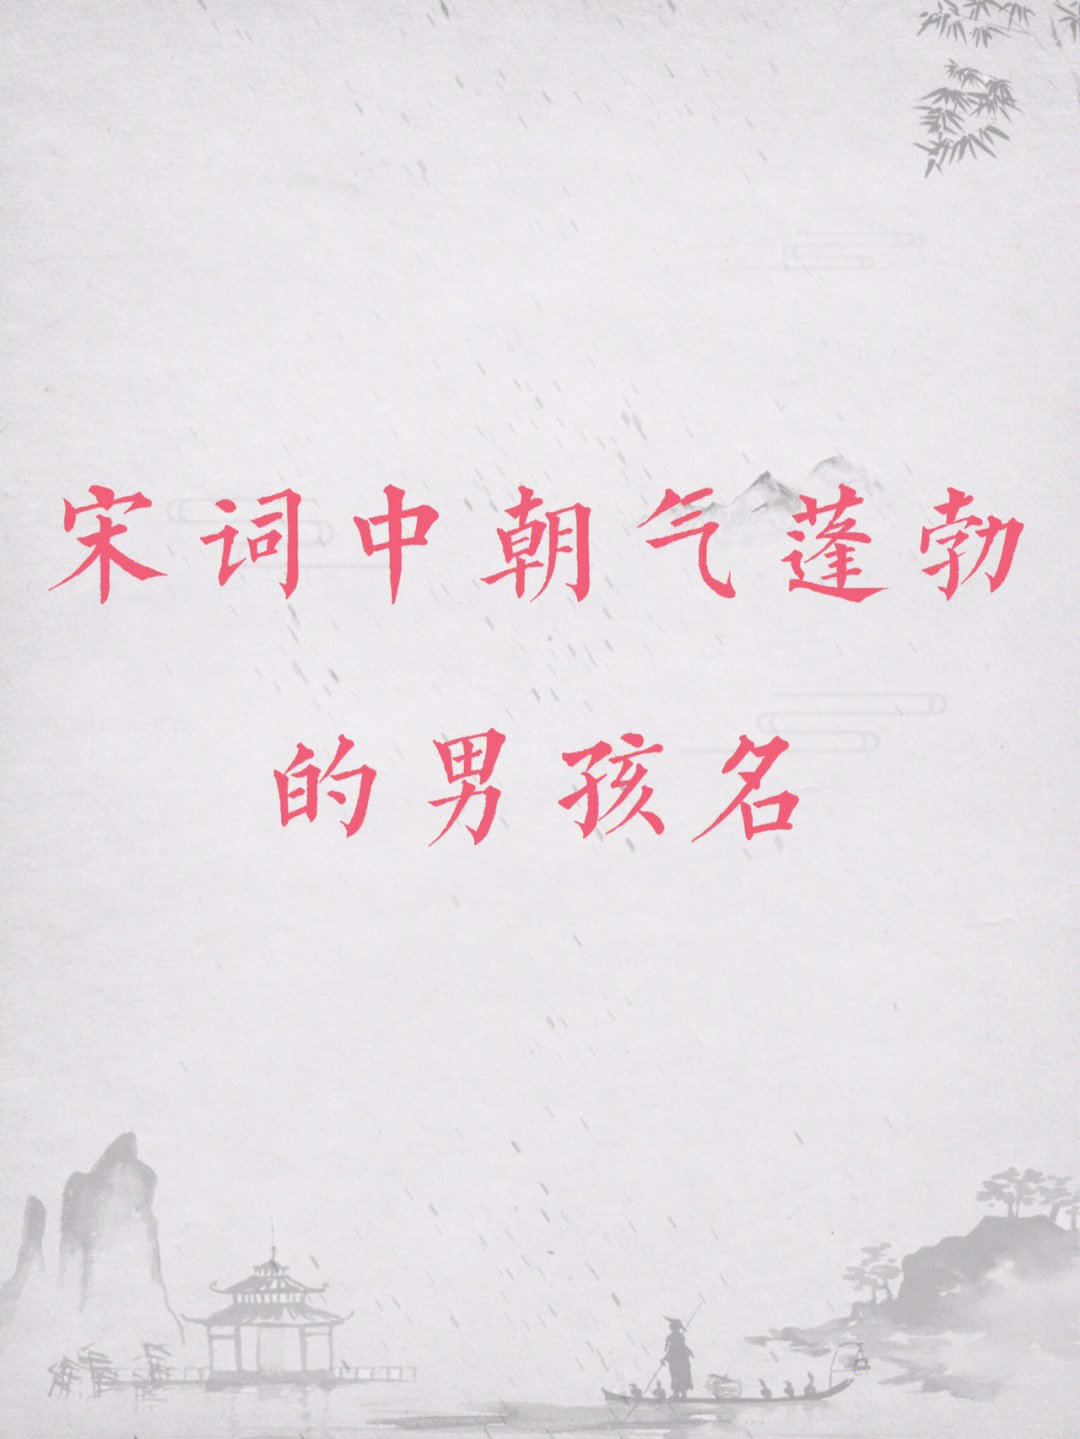 宋词中朝气蓬勃
的男孩名